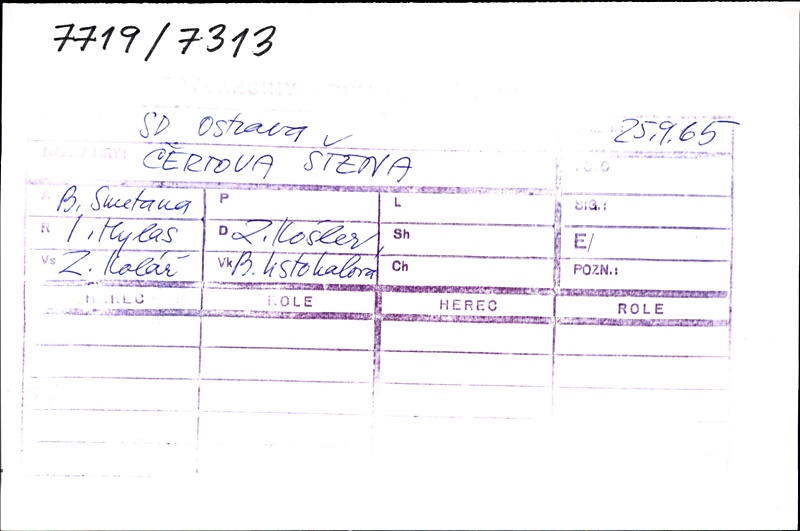 7719/7313
SD Ostrava 25.9.65
ČERTOVA STĚNA
B. Smetana P L SIG.:
R I. Hylas D Z. Košler Sh E/
Vs Z. Kolář Vk B. Ch POZN.:
HEREC ROLE HEREC ROLE